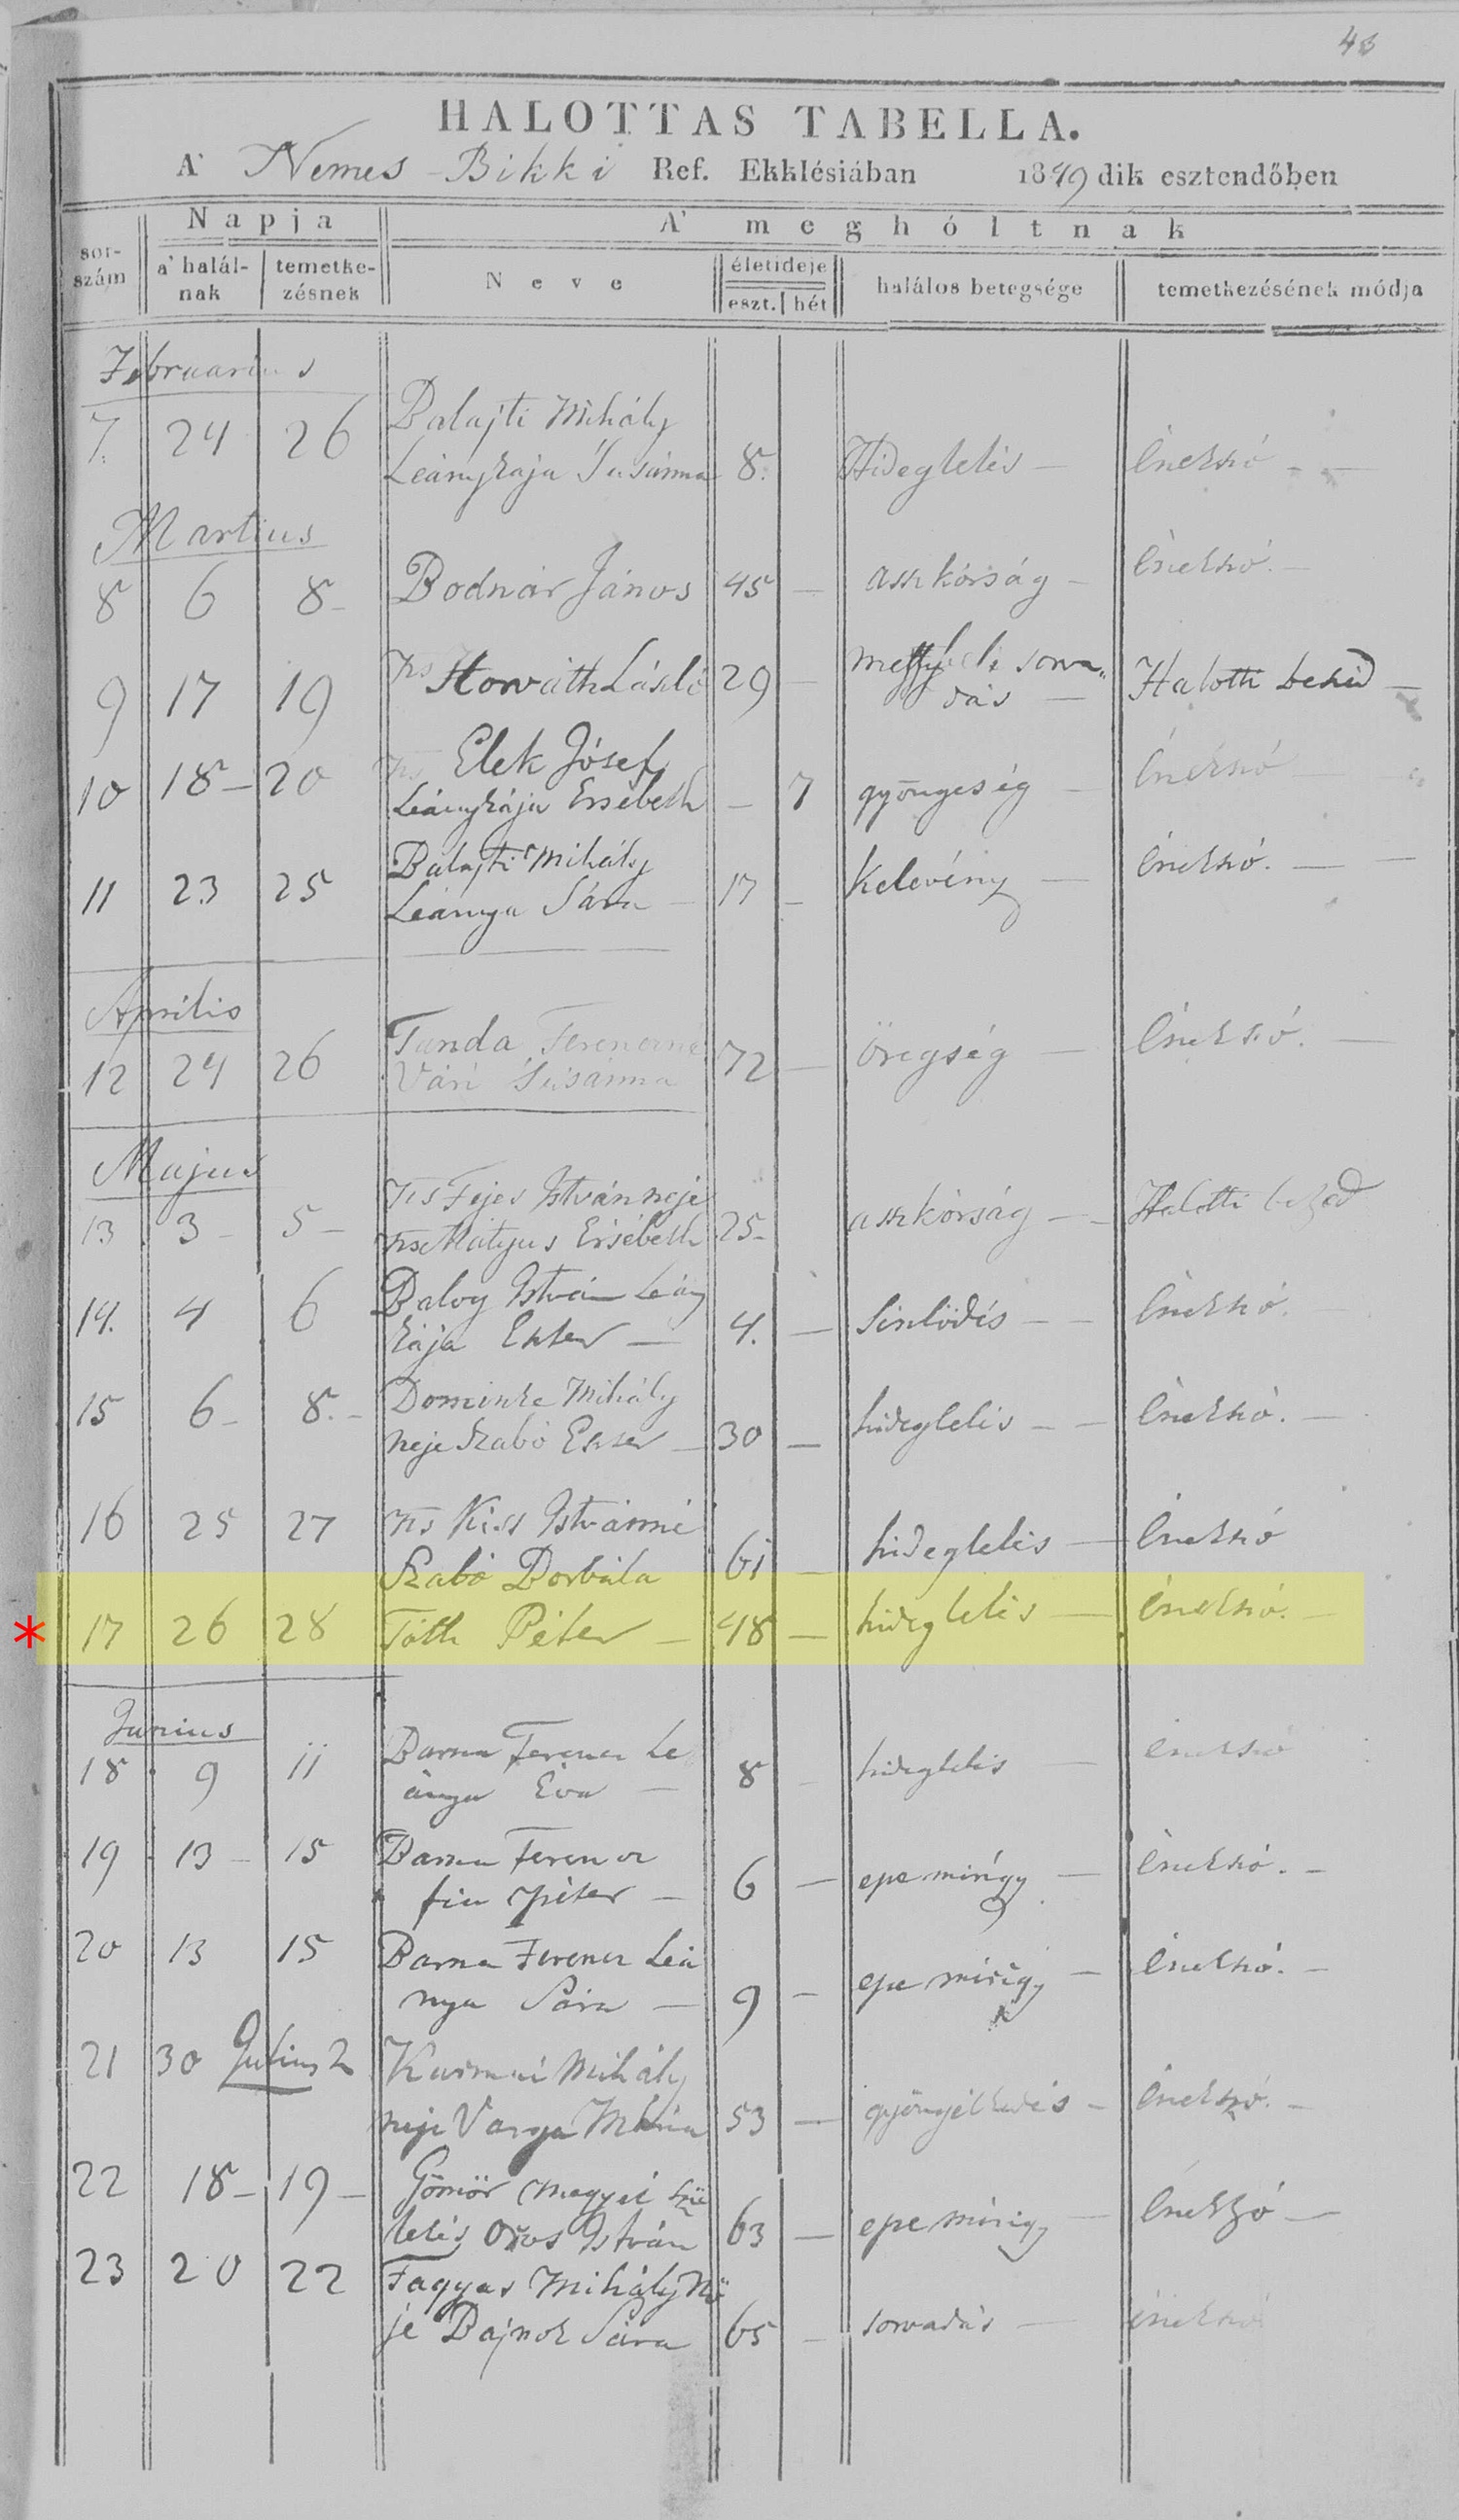 HALOTTAS TABELLA.
A' Nemes-Bikki Ref. Ekklésiában 1849dik esztendőben
sorszám
Napja
a' halálnak
temetkezésnek
A' meghóltnak
Neve
életideje
eszt. hét
halálos betegsége
temetkezésének módja
Februarius
7. 24 26 Balajti Mihály
Leánykája Susánna 8. Hideglelés — Énekszó - -
Martius
8 6 8- Bodnár János 45 — aszkórság - Énekszó. -
9 17 19 Ns Horváth László 29 — sorva„
dás — Halotti beszéd —
10 18 - 20 Ns Elek Jósef
Leánykája Ersébeth — 7 gyöngeség - Énekszó —
11 23 25 Balajti Mihály
Leánya Sára - 17 - Kelevény — énekszó. — -
Aprilis
12 24 26 Tanda Ferencné
Vári Susánna 72 — öregség — Énekszó. —
Majus
13 3 - 5 - Ns Fejes István neje
Ns Mátyus Ersébeth 25- aszkórság - - Halotti beszéd
14. 4 6 Balog István Leány
kája Eszter — 4. — Sinlödés - - Énekszó. -
15 6 - 8. - Dominke Mihály
neje Szabó Eszter - 30 — hideglelés - - Énekszó. -
16 25 27 Ns Kiss Istvánné
Szabó Borbála 61 — hideglelés — Énekszó
* 17 26 28 Tóth Péter — 48 — hideglelés — énekszó. -
Junius
18 9 11 Barna Ferencz Le
ánya Éva — 8 - hideglelés — Énekszó
19 13 - 15 Barna Ferencz
fia Péter — 6 — epe mirígy — Énekszó. -
20 13 15 Barna Ferencz Leá
nya Sára — 9 - epe mirigy - Énekszó. -
21 30 Julius 2 Mihály
neje Varga Mária 53 — - Énekszó. -
22 18 - 19 - Gömör megyei szü
letés Oros István 63 — epe mirigy - Énekszó —
23 20 22 Fagyas Mihály Nö
je Bajnok Sára 65 - sorvadás — énekszó